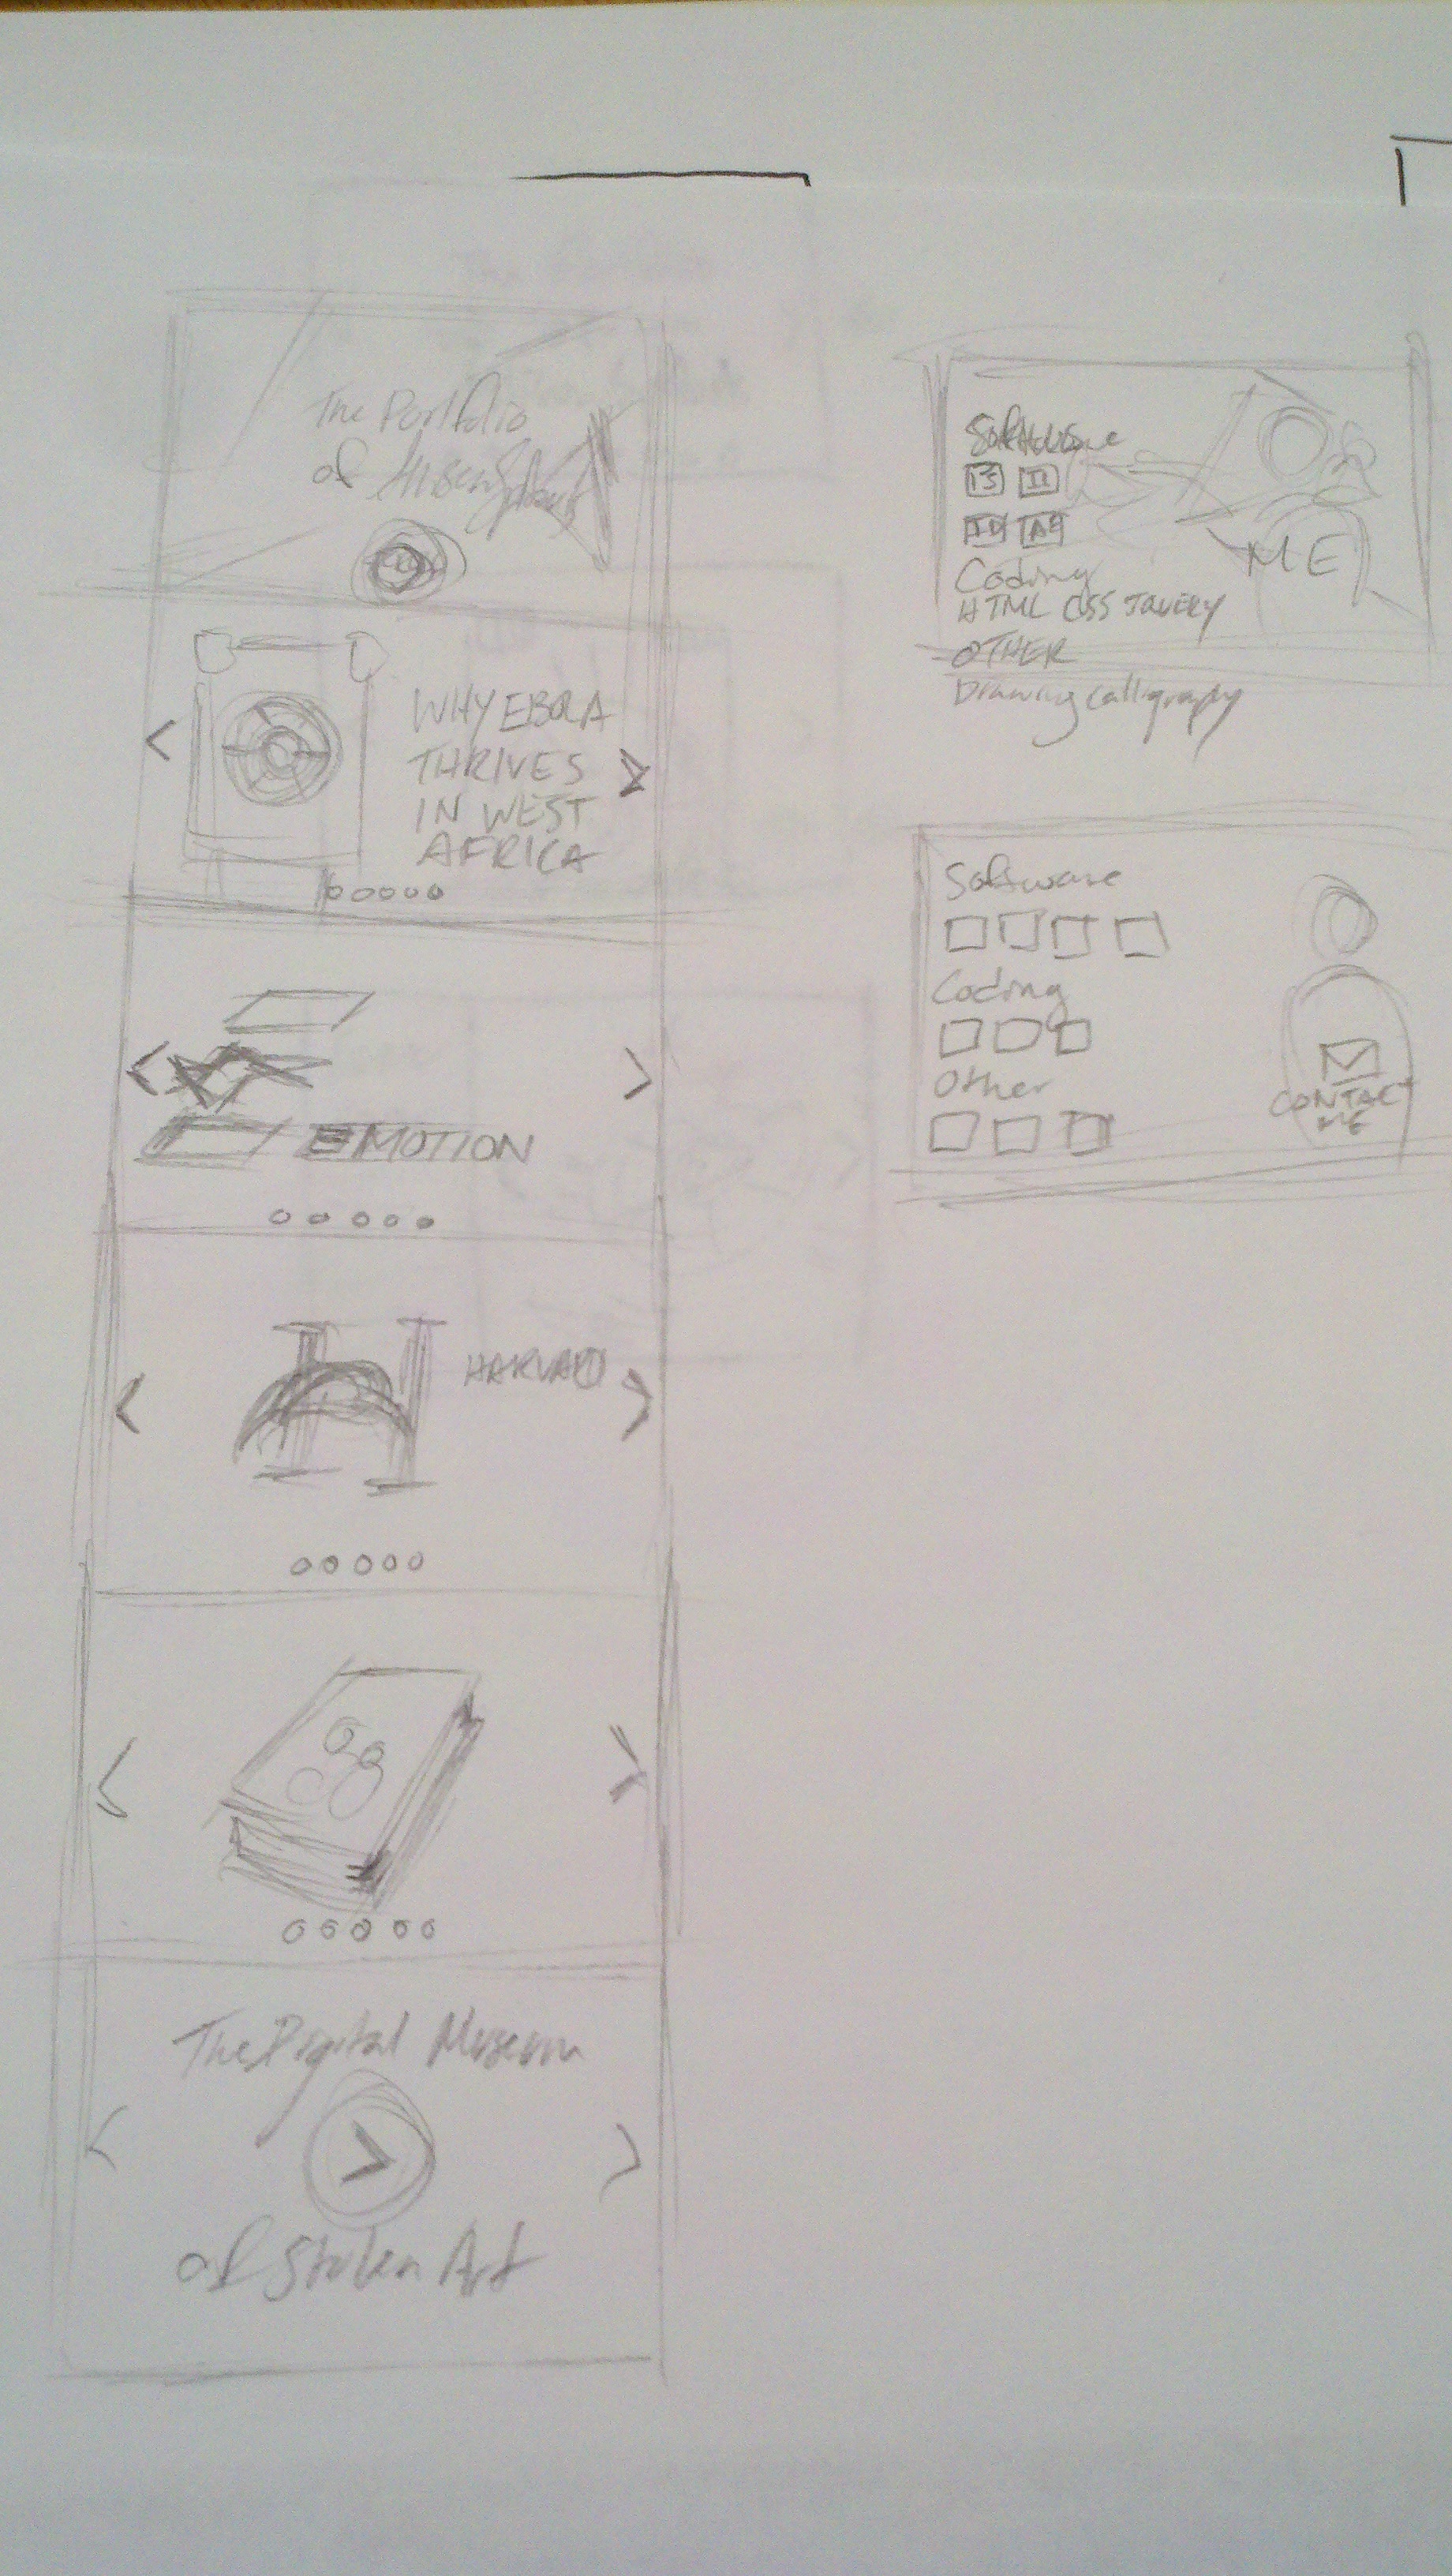 The Portfolio
of
WHY EBOLA
THRIVES
IN WEST
AFRICA
EMOTION
HARVARD
The Digital Museum
of Stolen Art
Software
PS Il
ID AE
ME
Coding
HTML CSS JQUERY
OTHER
Drawing calligraphy
Software
Coding
Other
CONTACT
ME